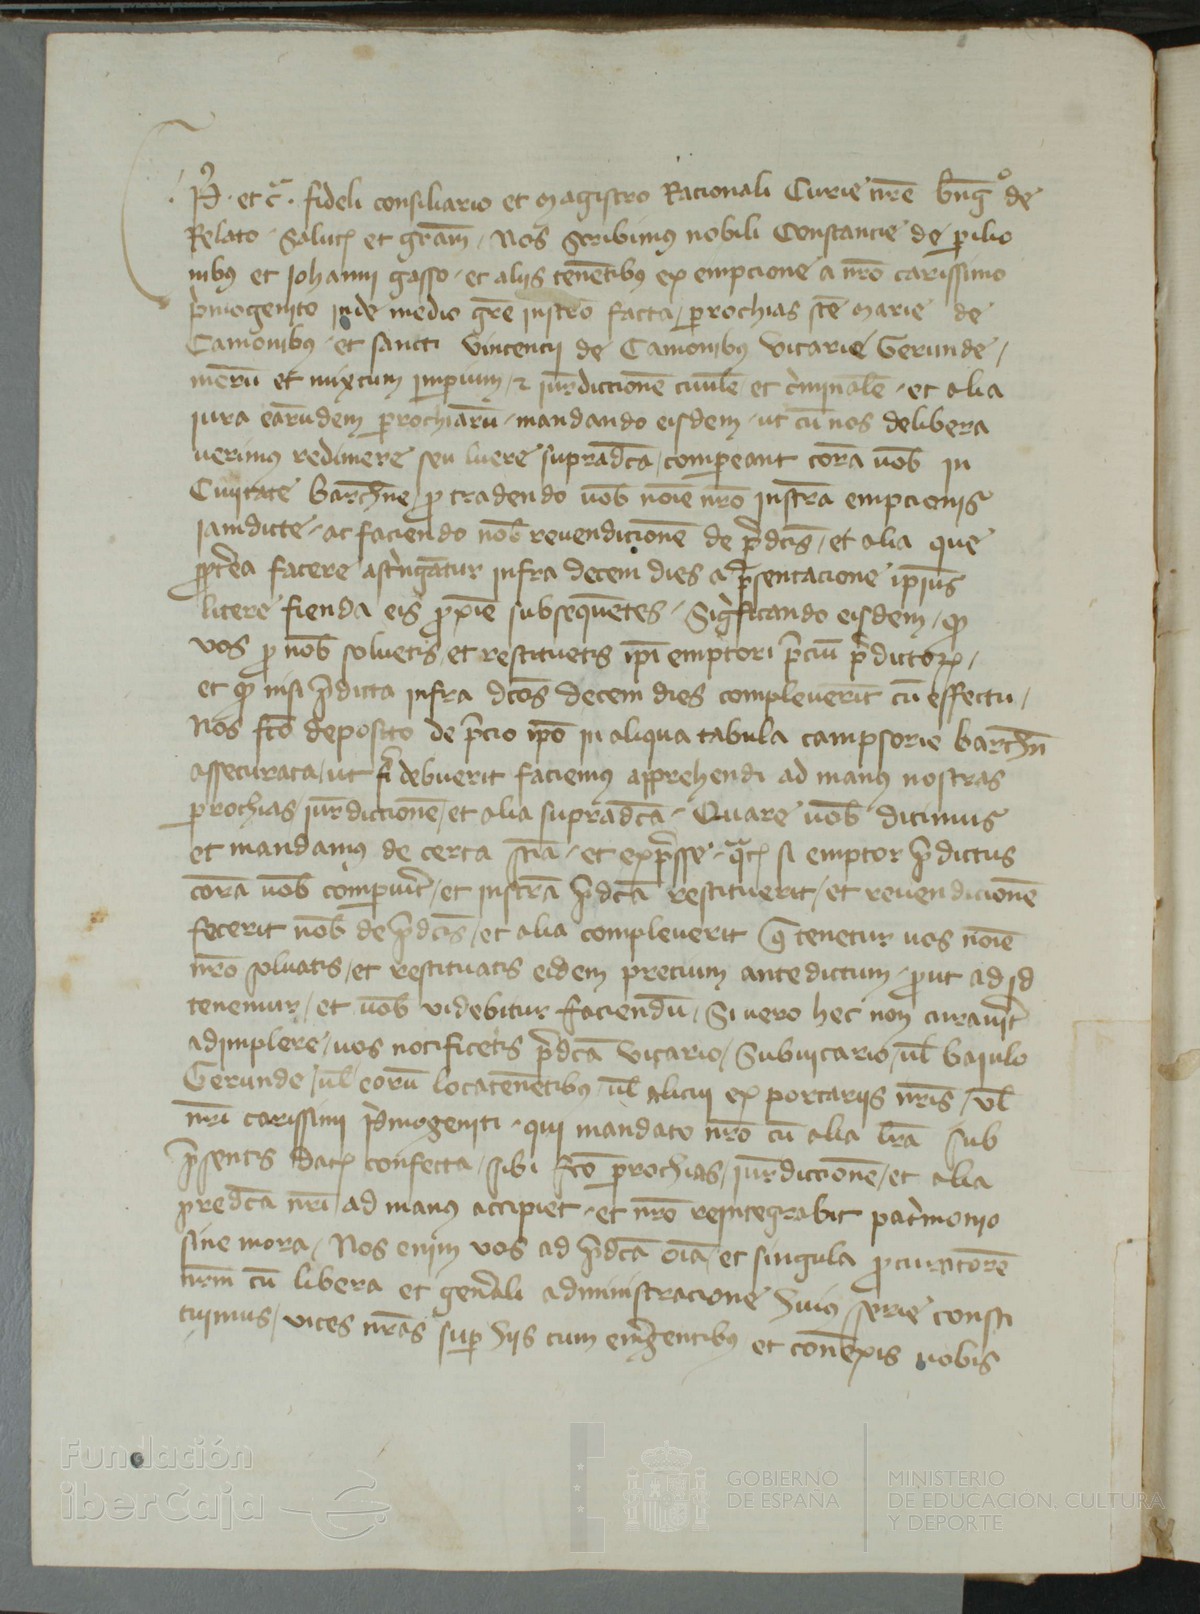 P. et cª. fideli consiliario et magistro Racionali Curie nr̃e bñg° de
Relato Salut̃ et gr̃am / Nos Scribimus nobili Constancie de perilio
nibus et Iohanni gasso et aliis tenẽtibus ex empcione a nr̃o carissimo
p̃mogenito inde medio gr̃e instr̃o facta / parrochias st̃e Marie de
Camonibus et sancti Vincencii de Camonibus Vicarie Gerunde /
merũ et mixtum imperium / et iur̃diccionẽ ciuilẽ et c̃minalẽ et alia
iura earũdem parrochiarũ mandando eisdem ut cũ nos delibera
uerimus redimere seu luere supradc̃a / compeant corã uob̃ in
Ciuitate barch̃ne / pro tradendo uob̃ nõie nr̃o instr̃a empcionis
iamdicte ac faciendo nob̃ reuendicionẽ de p̃dcĩs / et alia que
ppt̃ea facere ast̃ngãtur infra decem dies a p̃sentacione ipĩus
litere fienda eis p̃xie subsequẽtes / Sig̃ficando eisdem / qd
vos pro nob̃ soluetis et restituetis ip̃i emptori p̃ciũ p̃dictor̃ /
et qd nisi p̃dicta infra dc̃os decem dies compleuerĩt cũ effectu /
Nos fc̃o deposito de p̃cio ip̃o in aliqua tabula campsorie barch̃n
assecurata / ut fi debuerit faciemus apprehendi ad manus nostras
parrochias iur̃diccionẽ / et alia supradc̃a / Quare uob̃ dicimus
et mandamus de certa scĩa et exp̃sse qat̃ si emptor p̃dictus
corã uob̃ compuit̃ / et instr̃a p̃dc̃a restituerit / et reuendicionẽ
fecerit nob̃ de p̃dcĩs / et alia compleuerit q̃ tenetur uos nõie
nr̃o soluatis / et restituatis eidem precium antedictum / prout ad id
tenemur / et uob̃ videbitur faciendũ / Si uero hec non curauit̃
adimplere / uos notificetis p̃dc̃a Vicario / Subuicario / ul̃ baiulo
Gerunde / ul̃ eorũ locatenẽtibus / ul̃ alicui ex portariis nr̃is / ul̃
nr̃i carissimi p̃mogeniti qui mandato nr̃o cũ alia lr̃a sub
p̃sentis dat̃ confecta / sibi fc̃o parrochias / iur̃diccionẽ / et alia
predc̃a nr̃i ad manus accipiet et nr̃o reintegrabit pat̃monio
sine mora / Nos enim vos ad p̃dc̃a oĩa / et singula procuratorẽ
nr̃m cũ libera et gen̄ali administracione huius serie consti
tuimus / vices nr̃as sup hiis cum em̃gentibus et conẽxis uobis
Fundación
iberCaja
GOBIERNO
DE ESPAÑA
MINISTERIO
DE EDUCACIÓN, CULTURA
Y DEPORTE